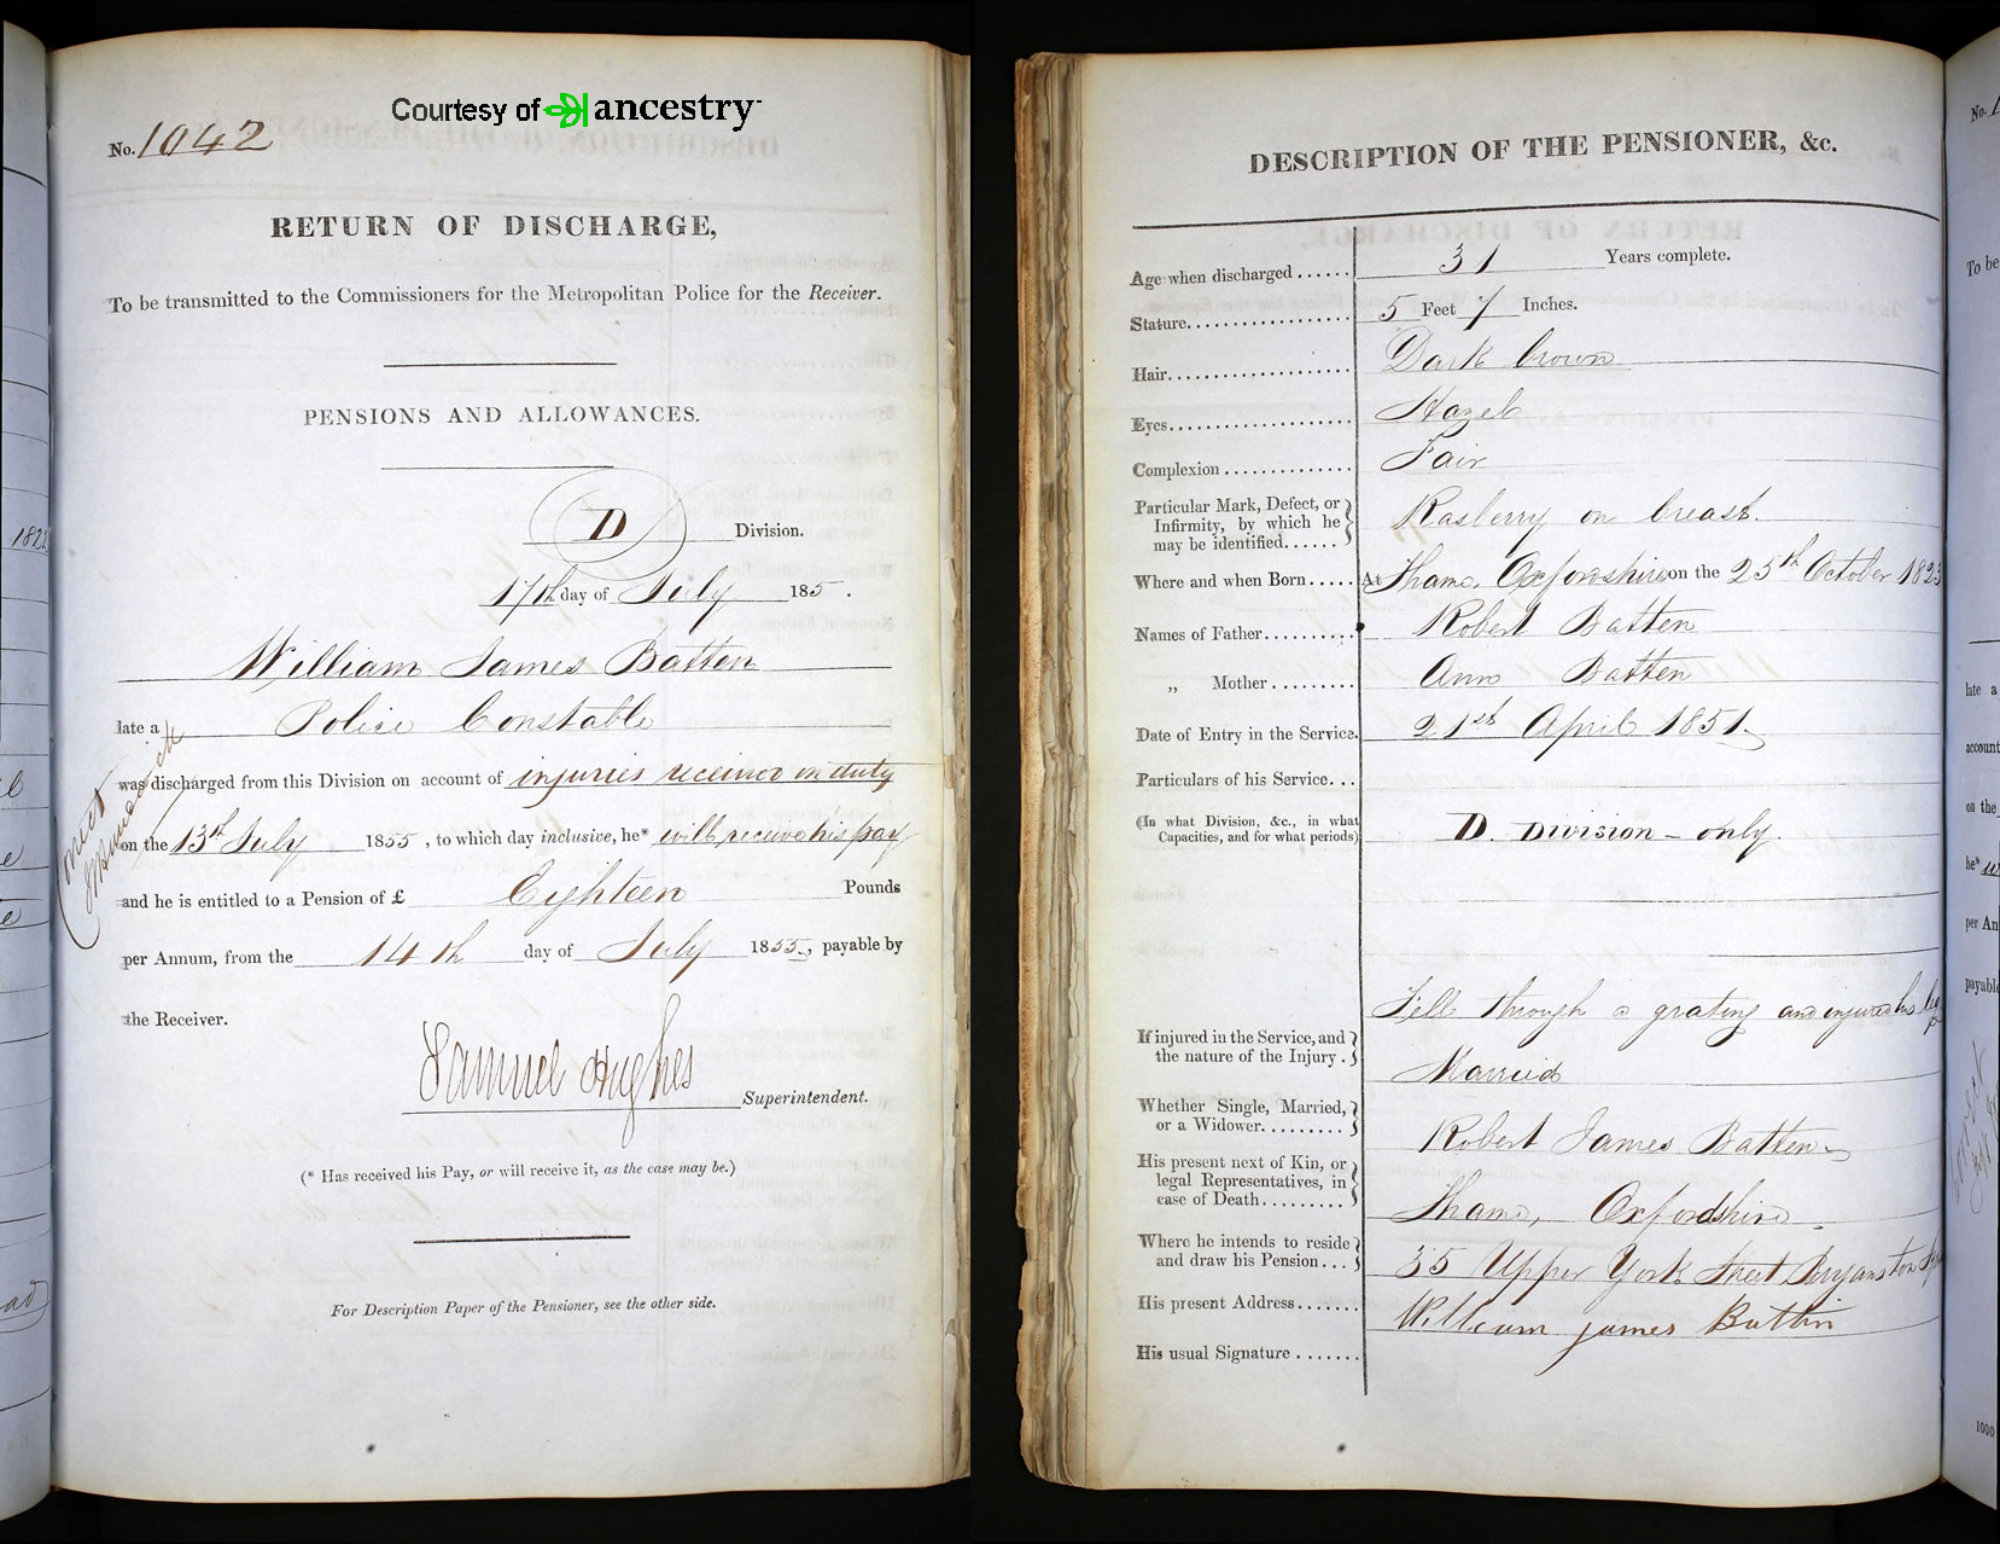 Courtesy of ancestry
No. 1042
RETURN OF DISCHARGE,
To be transmitted to the Commissioners for the Metropolitan Police for the Receiver.
PENSIONS AND ALLOWANCES.
D Division.
17th day of July 185 .
William James Batten
late a Police Constable
was discharged from this Division on account of injuries received on duty
on the 13th July 1855 , to which day inclusive, he* will receive his pay
and he is entitled to a Pension of £ Eighteen Pounds
per Annum, from the 14th day of July 1855, payable by
the Receiver.
Samuel Hughes
Superintendent.
(* Has received his Pay, or will receive it, as the case may be.)
For Description Paper of the Pensioner, see the other side.
DESCRIPTION OF THE PENSIONER, &c.
Age when discharged ...... 31 Years complete.
Stature.................. 5 Feet 7 Inches.
Hair..................... Dark brown
Eyes..................... Hazel
Complexion .............. Fair
Particular Mark, Defect, or
Infirmity, by which he
may be identified...... Rasberry on breast.
Where and when Born ..... At Thame Oxfordshire on the 25th October 1823
Names of Father.......... Robert Batten
„ Mother ......... Ann Batten
Date of Entry in the Service. 21st April 1851.
Particulars of his Service. . .
(In what Division, &c., in what
Capacities, and for what periods) D. Division - only.
Fell through a grating and injured his leg
If injured in the Service, and
the nature of the Injury .
Married
Whether Single, Married,
or a Widower.........
Robert James Batten
His present next of Kin, or
legal Representatives, in
case of Death.........
Thame, Oxfordshire
Where he intends to reside
and draw his Pension . . .
35 Upper York Street Bryanston
His present Address.......
William james Battin
His usual Signature .......
1822
No.
To be
late a
account
on the
he*
per An
payable
1000